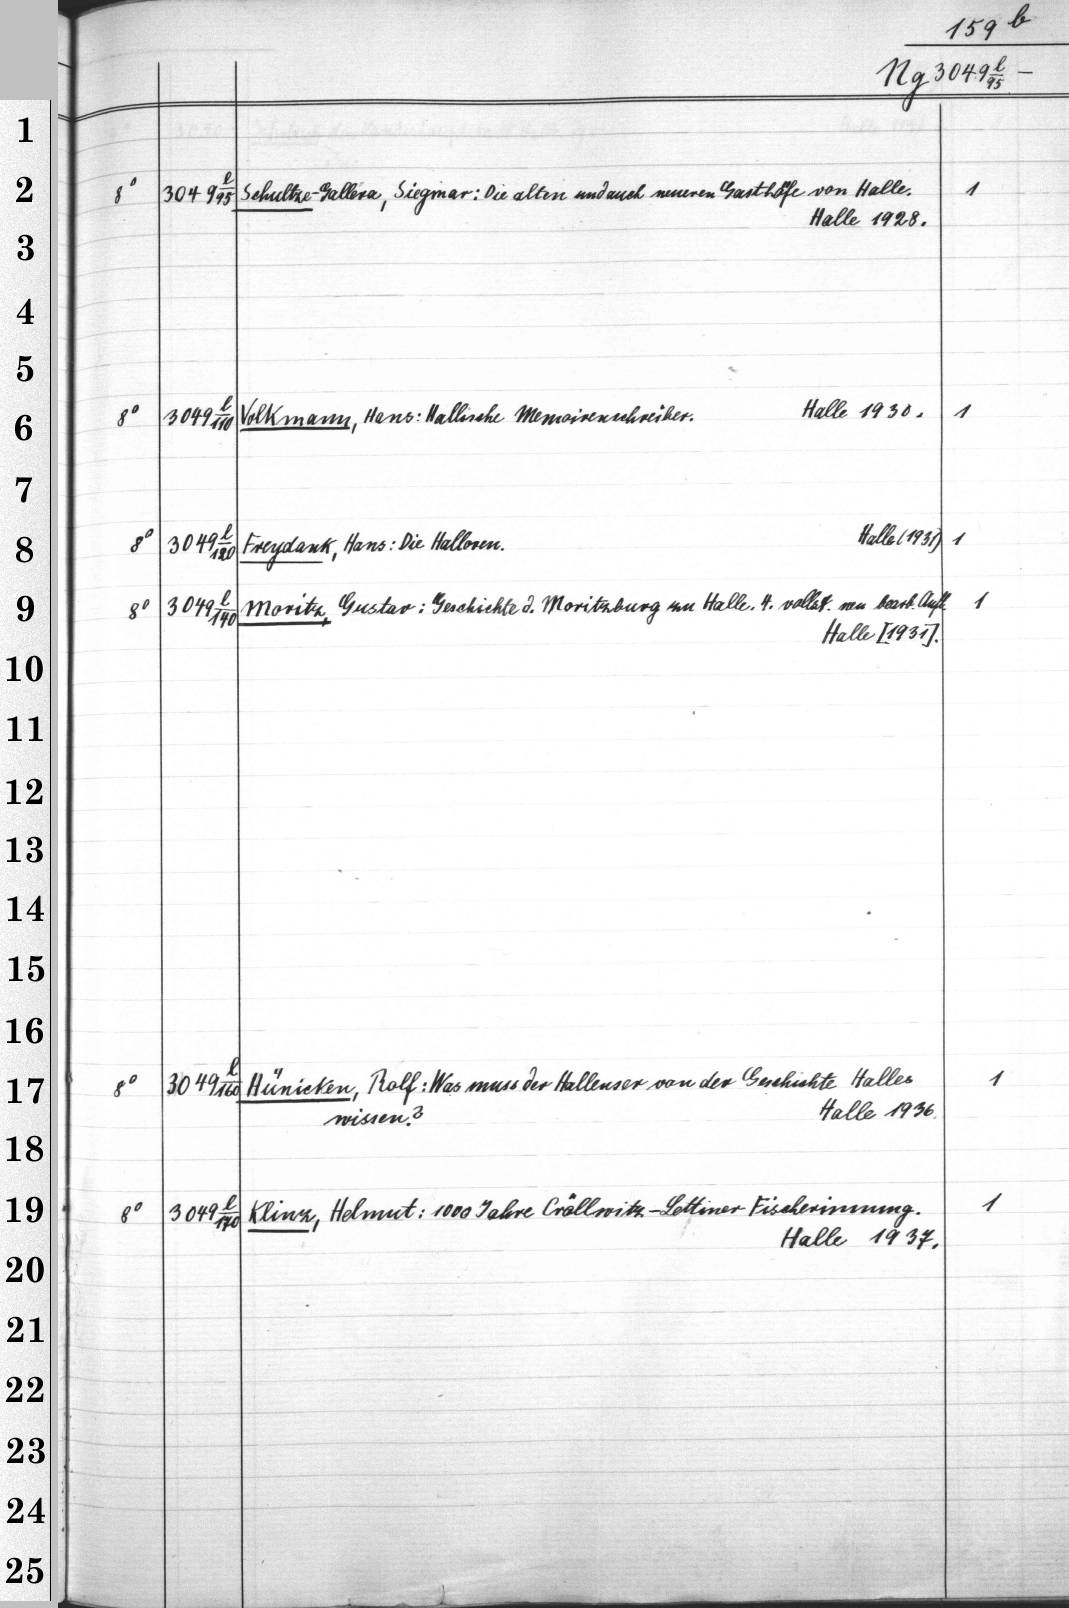 159 b
Ng 3049 l/95 –
1
2
8° 3049 l/95 Schultze-Gallera, Siegmar: Die alten und auch neueren Gasthöfe von Halle. 1
Halle 1928.
3
4
5
6
8° 3049 l/110 Volkmann, Hans: Hallische Memoirenschreiber. Halle 1930. 1
7
8
8° 3049 l/120 Freydank, Hans: Die Halloren. Halle (1931) 1
9
8° 3049 l/140 Moritz, Gustav: Geschichte d. Moritzburg zu Halle. 4. vollst. neu bearb. Aufl. 1
Halle [1931].
10
11
12
13
14
15
16
17
8° 3049 l/160 Hünicken, Rolf: Was muss der Hallenser von der Geschichte Halles 1
wissen? Halle 1936.
18
19
8° 3049 l/170 Klinz, Helmut: 1000 Jahre Cröllwitz-Lettiner Fischerinnung. 1
Halle 1937.
20
21
22
23
24
25